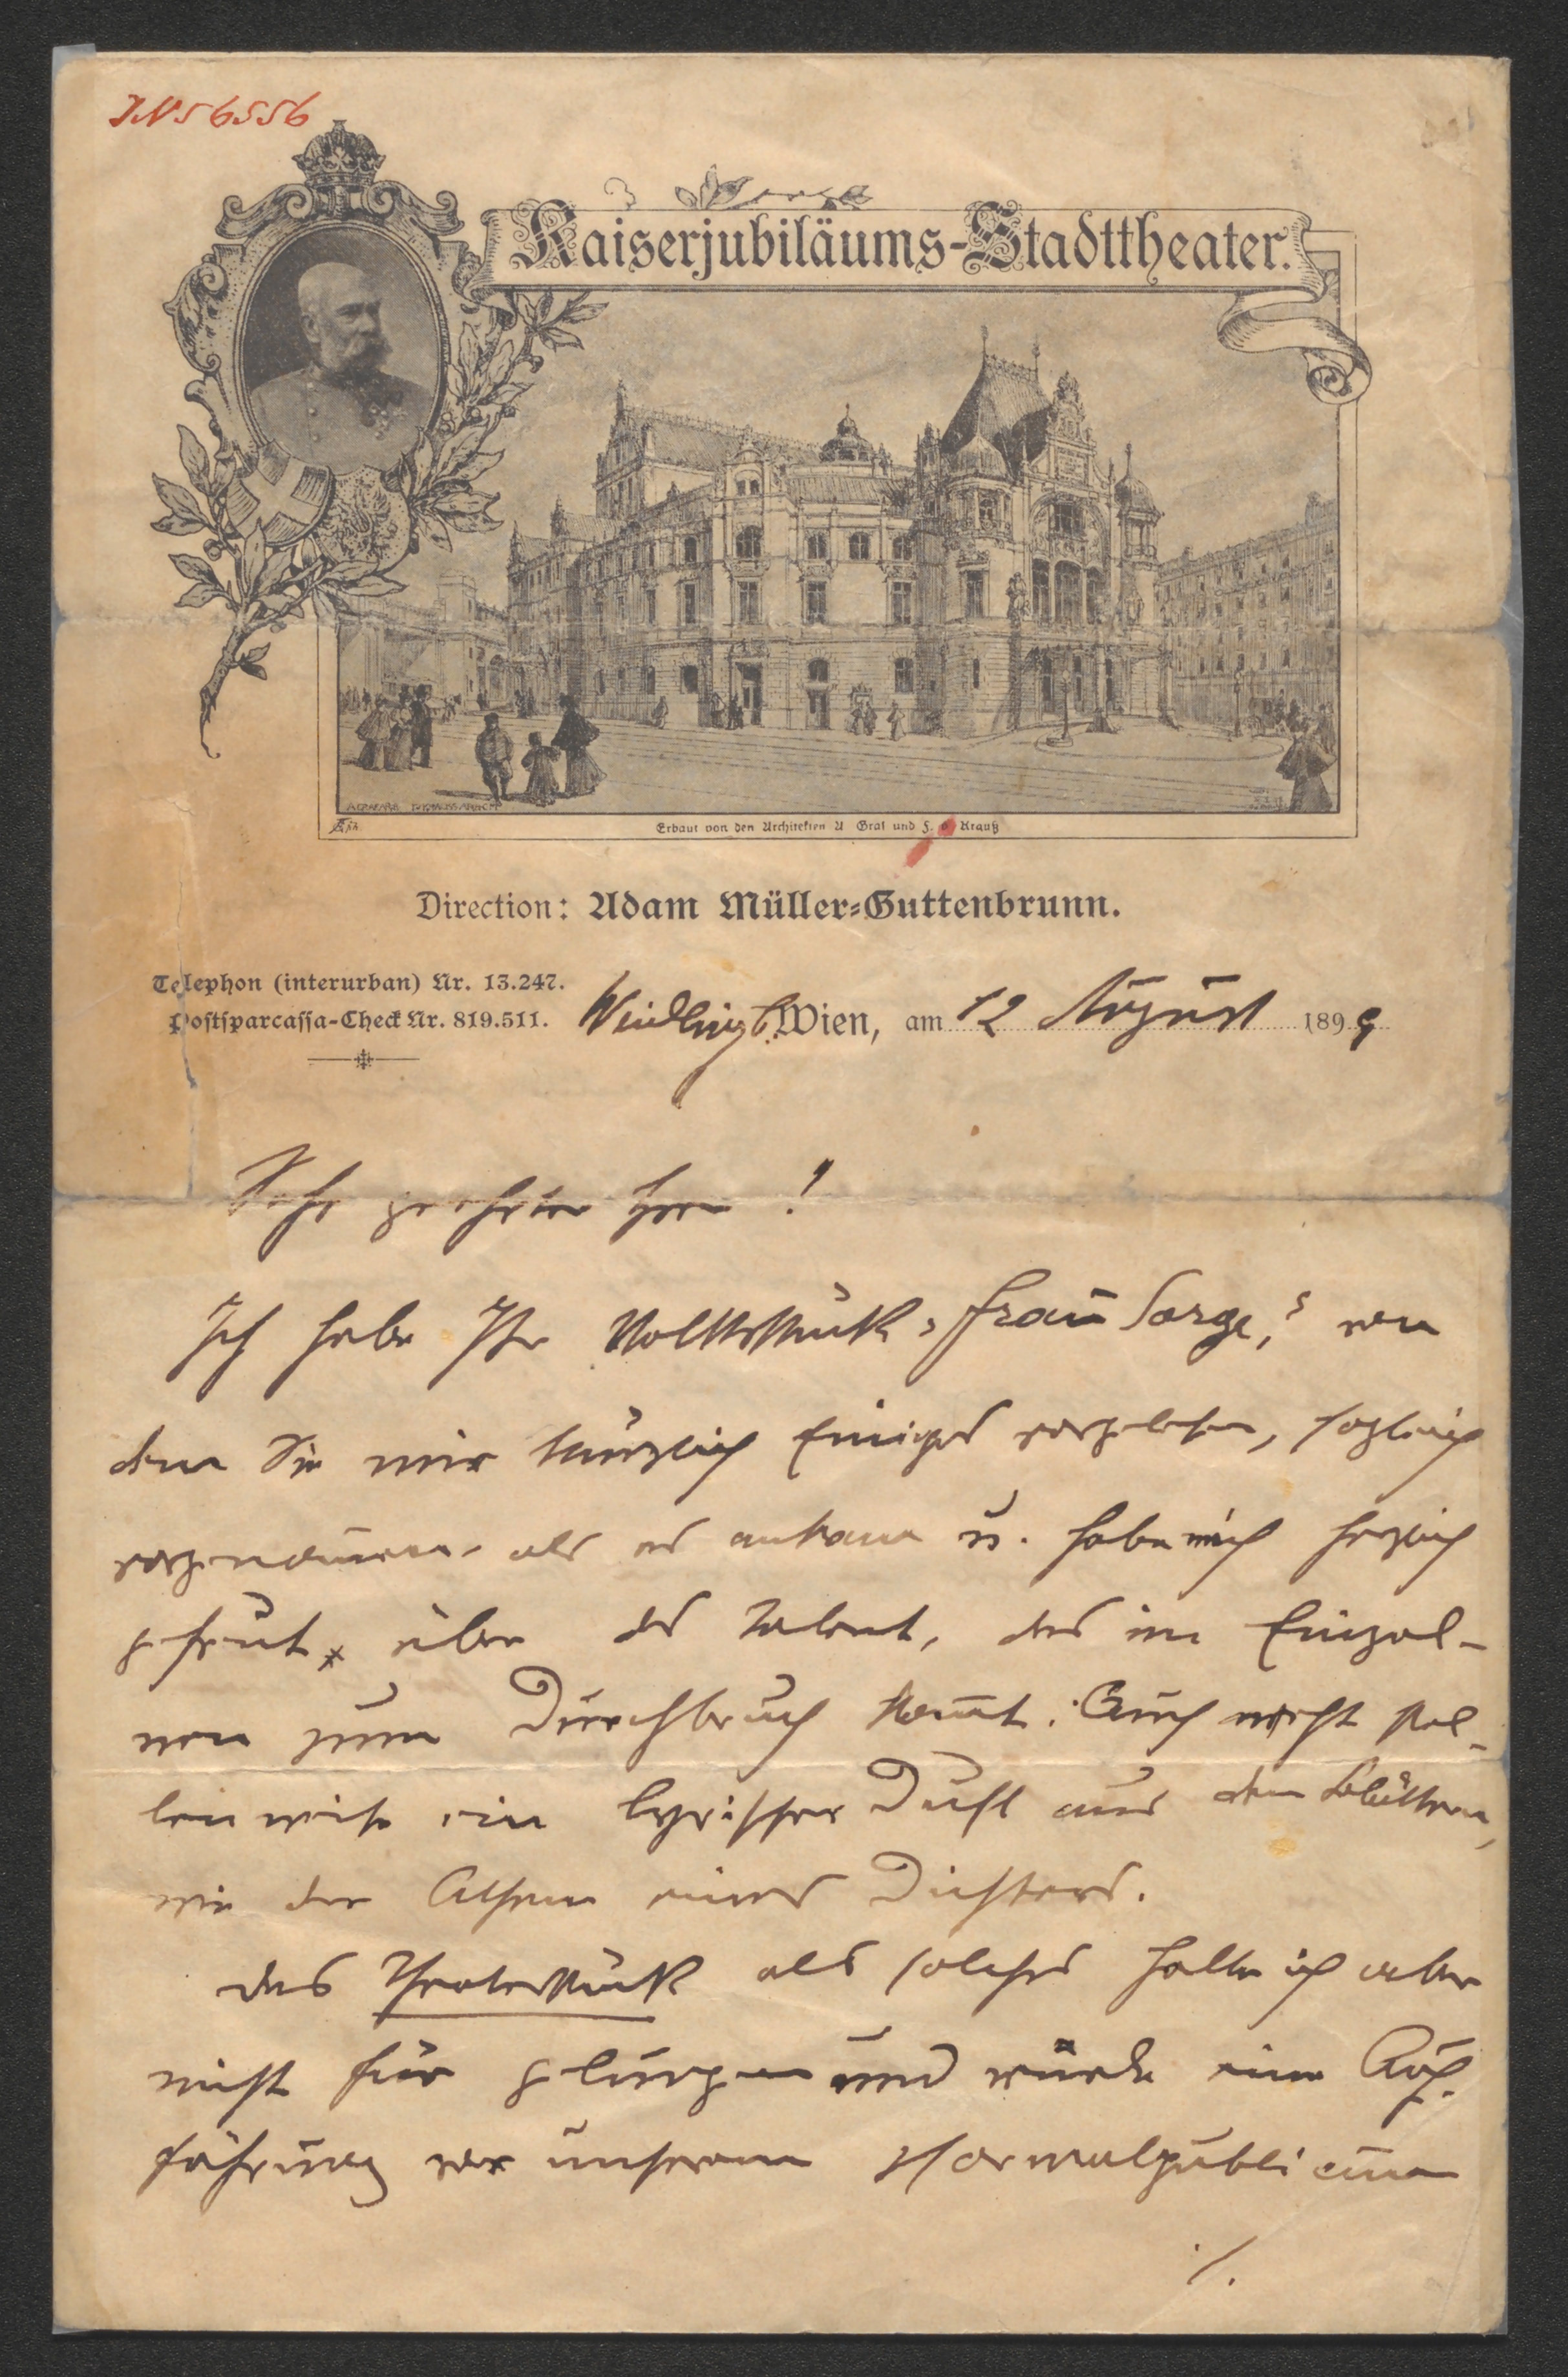 JN 56556
Kaiserjubiläums-Stadttheater.
Erbaut von den Architekten A Graf und F. v Krauß
Direction: Adam Müller-Guttenbrunn.
Telephon (interurban) Nr. 13.247.
Postsparcassa-Check Nr. 819.511.
Weidling b. Wien, am 12 August 1899
Sehr geehrter Herr!
Ich habe Ihr Volksstück „Frau Sorge," von
dem Sie mir kürzlich Einiges vorgelesen, sogleich
vorgenommen als es ankam u. habe mich herzlich
gefreut, über das Talent, das im Einzel-
nen zum Durchbruch kommt. Auch weht stel-
lenweise ein lyrischer Duft aus den Blättern,
wie der Athem eines Dichters.
Das Theaterstück als solches halte ich aber
nicht für gelungen und würde eine Auf-
führung vor unserem Normalpublicum
./.